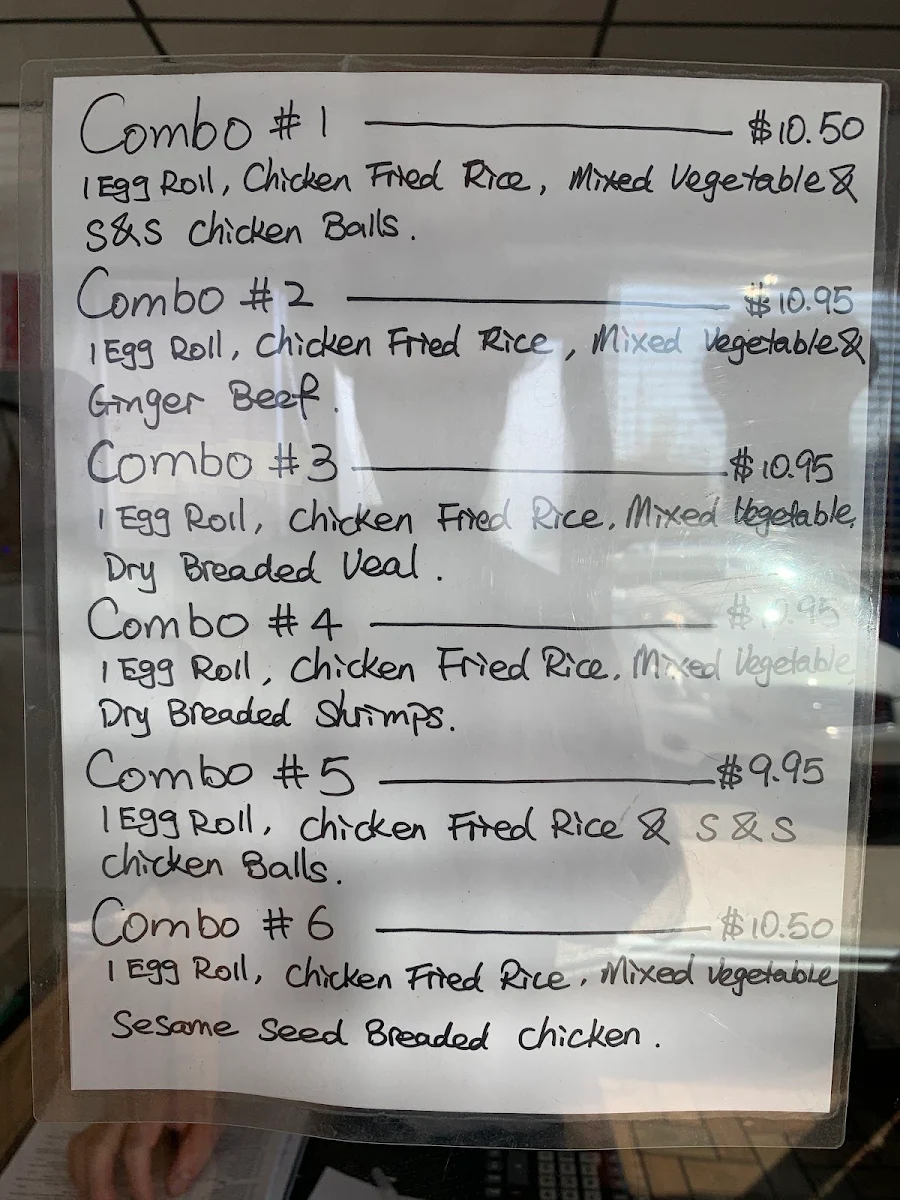 Combo #1 $10.50
1 Egg Roll, Chicken Fried Rice, Mixed Vegetable &
S&S Chicken Balls.
Combo #2 $10.95
1 Egg Roll, Chicken Fried Rice, Mixed Vegetable &
Ginger Beef.
Combo #3 $10.95
1 Egg Roll, Chicken Fried Rice, Mixed Vegetable,
Dry Breaded Veal.
Combo #4
1 Egg Roll, Chicken Fried Rice, Mixed Vegetable,
Dry Breaded Shrimps.
Combo #5 $9.95
1 Egg Roll, Chicken Fried Rice & S&S
Chicken Balls.
Combo #6 $10.50
1 Egg Roll, Chicken Fried Rice, Mixed Vegetable
Sesame Seed Breaded Chicken.